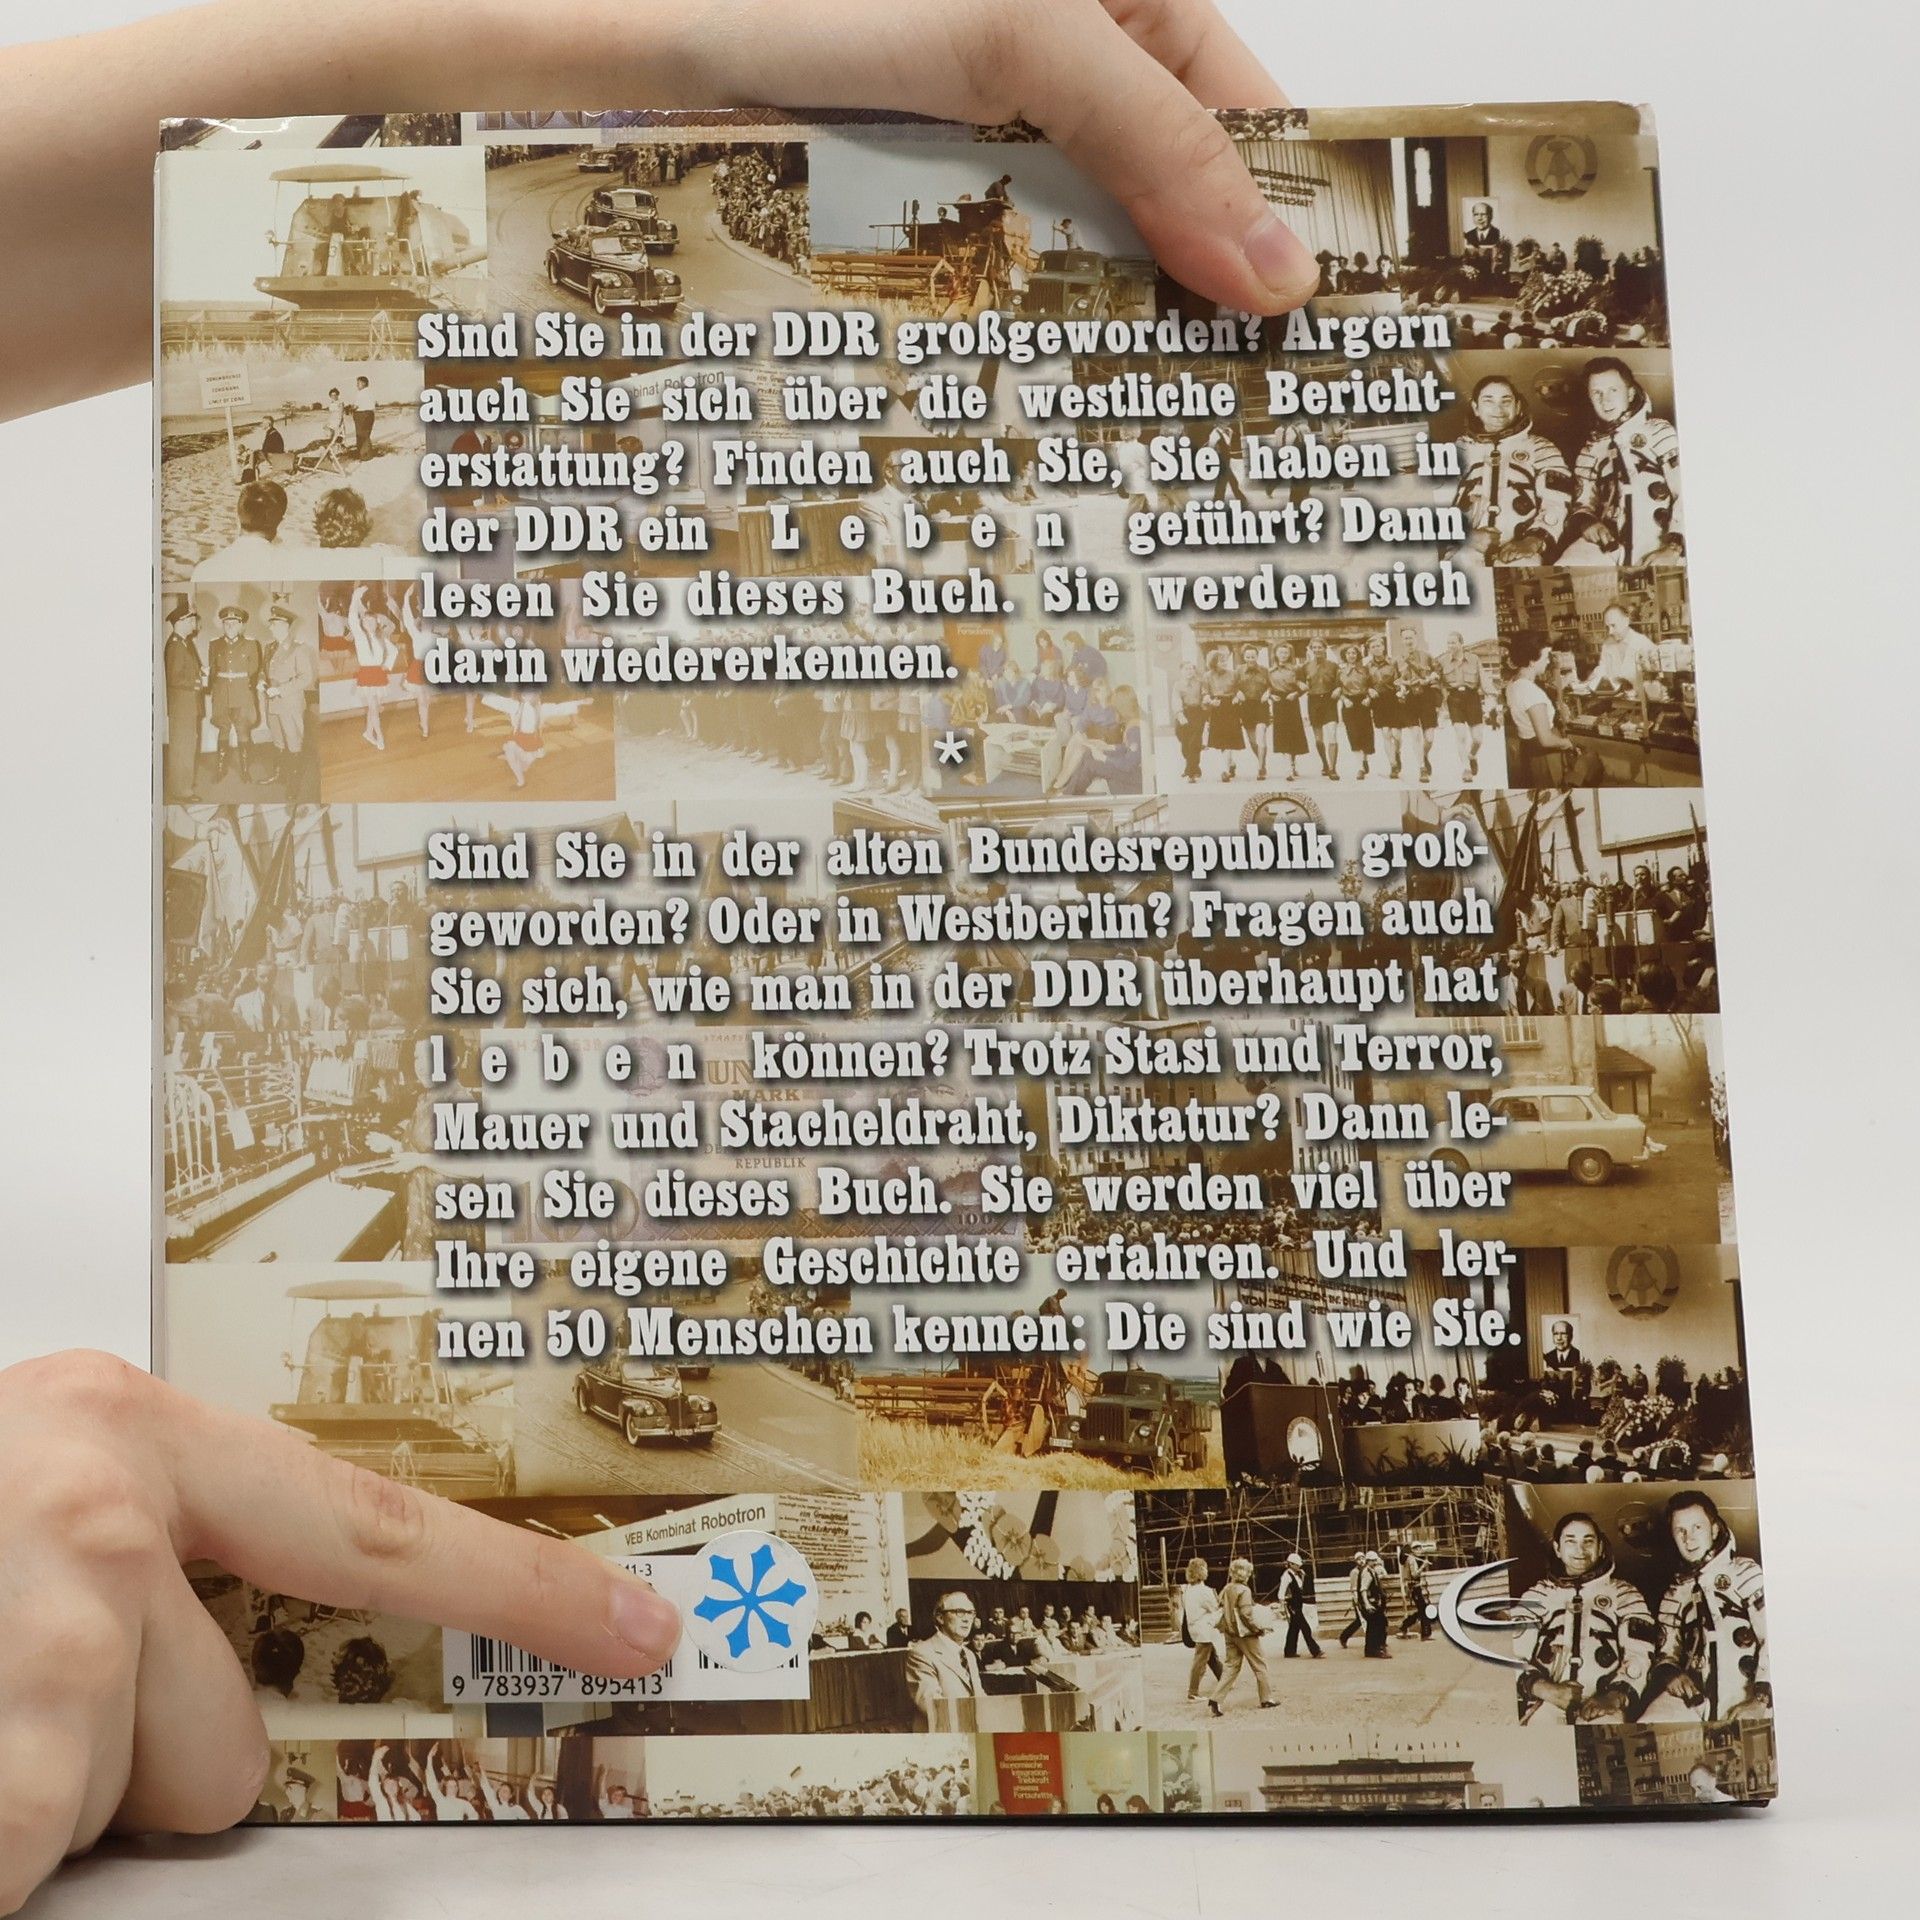 Sind Sie in der DDR großgeworden? Ärgern
auch Sie sich über die westliche Bericht-
erstattung? Finden auch Sie, Sie haben in
der DDR ein L e b e n geführt? Dann
lesen Sie dieses Buch. Sie werden sich
darin wiedererkennen.
*
Sind Sie in der alten Bundesrepublik groß-
geworden? Oder in Westberlin? Fragen auch
Sie sich, wie man in der DDR überhaupt hat
l e b e n können? Trotz Stasi und Terror,
Mauer und Stacheldraht, Diktatur? Dann le-
sen Sie dieses Buch. Sie werden viel über
Ihre eigene Geschichte erfahren. Und ler-
nen 50 Menschen kennen: Die sind wie Sie.
VEB Kombinat Robotron
9 783937 895413
Sozialistische
ökonomische
Integration-
Triebkraft
unseres
Fortschritts